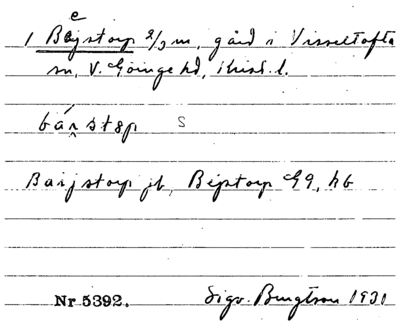 e
1 Bejstorp 2/3 m, gård i Visseltofta
sn, V. Göinge hd, Krist. l.
bá̭nstəp s
Baijstorp jb, Bejstorp GG, hb
Nr 5392. Sigv. Bengtson 1931